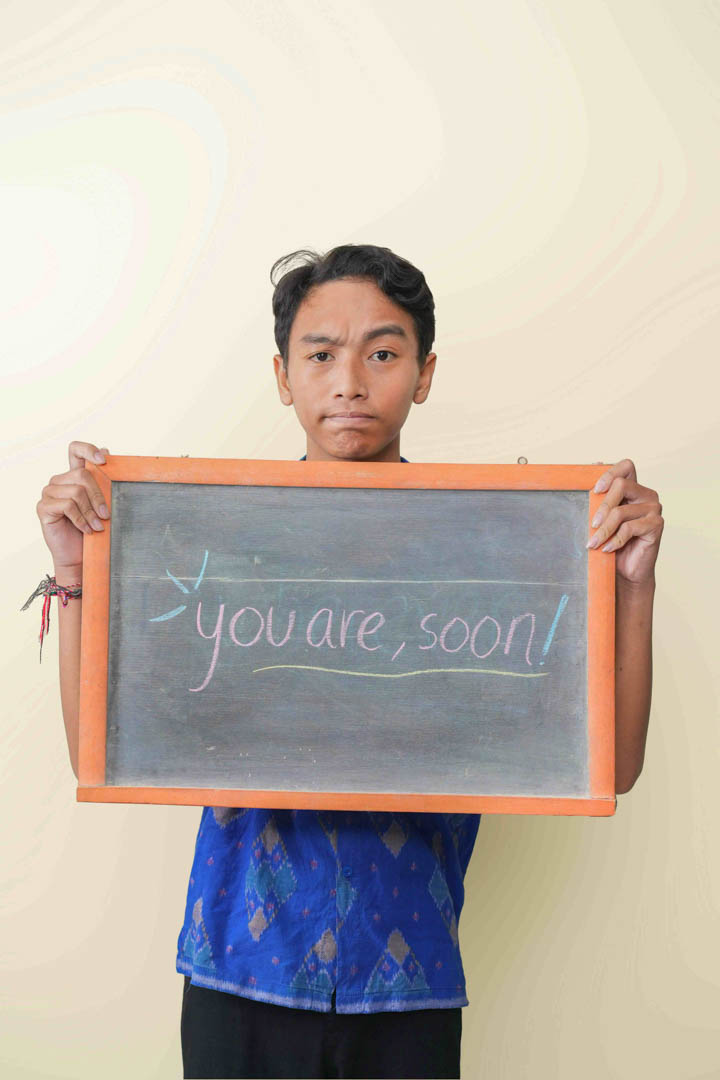 you are, soon!